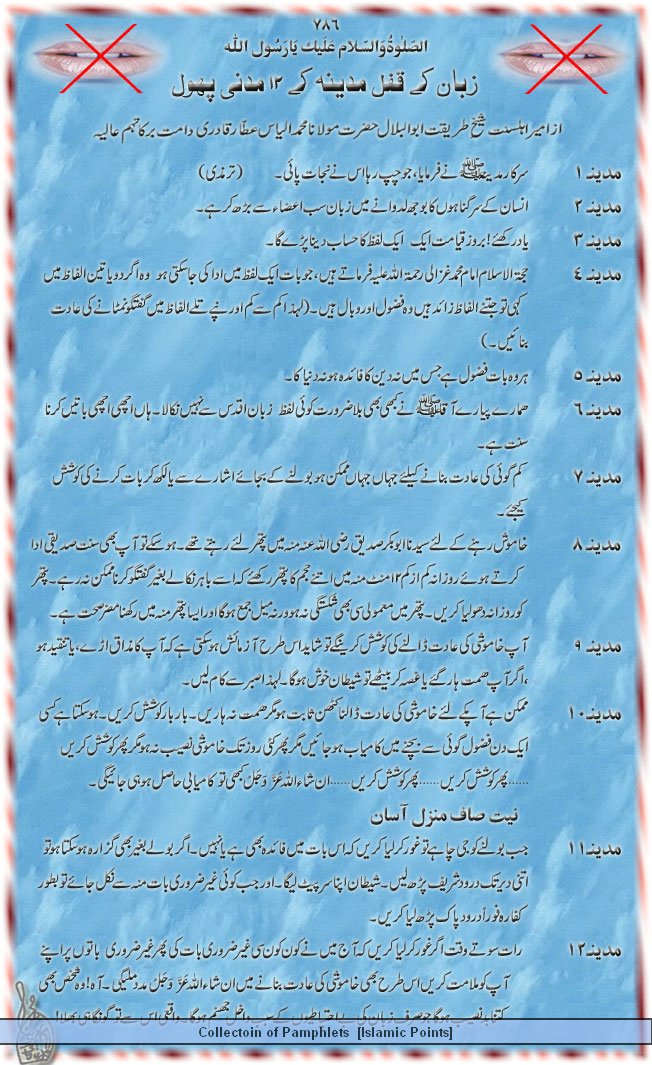 ۷۸۶
الصّلوٰۃُ وَالسّلام عَلَیْكَ یَارَسُولَ اللّٰه
زبان کے قفل مدینہ کے ۱۲ مدنی پھول
از امیر اہلسنت شیخ طریقت ابوالبلال حضرت مولانا محمد الیاس عطار قادری دامت برکاتہم عالیہ
مدینہ ۱ سرکار مدینہ ﷺ نے فرمایا، جو چپ رہا اس نے نجات پائی۔ (ترمذی)
مدینہ ۲ انسان کے سر گناہوں کا بوجھ لدوانے میں زبان سب اعضاء سے بڑھ کر ہے۔
مدینہ ۳ یاد رکھئے! بروز قیامت ایک ایک لفظ کا حساب دینا پڑے گا۔
مدینہ ٤ حجۃ الاسلام امام محمد غزالی رحمۃ اللہ علیہ فرماتے ہیں، جو بات ایک لفظ میں ادا کی جاسکتی ہو وہ اگر دو یا تین الفاظ میں
کہی تو جتنے الفاظ زائد ہیں وہ فضول اور وبال ہیں۔ (لہذا کم سے کم اور نپے تلے الفاظ میں گفتگو نمٹانے کی عادت
بنائیں۔)
مدینہ ۵ ہر وہ بات فضول ہے جس میں نہ دین کا فائدہ ہو نہ دنیا کا۔
مدینہ ٦ ھمارے پیارے آقا ﷺ نے کبھی بھی بلا ضرورت کوئی لفظ زبان اقدس سے نہیں نکالا۔ ہاں اچھی اچھی باتیں کرنا
سنت ہے۔
مدینہ ۷ کم گوئی کی عادت بنانے کیلئے جہاں جہاں ممکن ہو بولنے کے بجائے اشارے سے یا لکھ کر بات کرنے کی کوشش
کیجئے۔
مدینہ ۸ خاموش رہنے کے لئے سیدنا ابوبکر صدیق رضی اللہ عنہ منہ میں پتھر لئے رہتے تھے۔ ہوسکے تو آپ بھی سنت صدیقی ادا
کرتے ہوئے روزانہ کم از کم ۱۲ منٹ منہ میں اتنے حجم کا پتھر رکھئے کہ اسے باہر نکالے بغیر گفتگو کرنا ممکن نہ رہے۔ پتھر
کو روزانہ دھو لیا کریں۔ پتھر میں معمولی سی بھی شکستگی نہ ہو ورنہ میل جمع ہوگا اور ایسا پتھر منہ میں رکھنا مضر صحت ہے۔
مدینہ ۹ آپ خاموشی کی عادت ڈالنے کی کوشش کرینگے تو شاید اس طرح آزمائش ہوسکتی ہے کہ آپ کا مذاق اڑے، یا تنقید ہو
،اگر آپ ھمت ہار گئے یا غصہ کر بیٹھے تو شیطان خوش ہوگا۔ لہذا صبر سے کام لیں۔
مدینہ ۱۰ ممکن ہے آپکے لئے خاموشی کی عادت ڈالنا کٹھن ثابت ہو مگر ھمت نہ ہاریں۔ بار بار کوشش کریں۔ ہوسکتا ہے کسی
ایک دن فضول گوئی سے بچنے میں کامیاب ہو جائیں مگر پھر کئی روز تک خاموشی نصیب نہ ہو مگر پھر کوشش کریں
......پھر کوشش کریں......پھر کوشش کریں......ان شاء اللہ عَزَّ وَجَلَّ کبھی تو کامیابی حاصل ہو ہی جائیگی۔
نیت صاف منزل آسان
مدینہ ۱۱ جب بولنے کو جی چاہے تو غور کر لیا کریں کہ اس بات میں فائدہ بھی ہے یا نہیں۔ اگر بولے بغیر بھی گزارہ ہو سکتا ہو تو
اتنی دیر تک درود شریف پڑھ لیں۔ شیطان اپنا سر پیٹ لیگا۔ اور جب کوئی غیر ضروری بات منہ سے نکل جائے تو بطور
کفارہ فوراً درود پاک پڑھ لیا کریں۔
مدینہ ۱۲ رات سوتے وقت اگر غور کر لیا کریں کہ آج میں نے کون کون سی غیر ضروری بات کی پھر غیر ضروری باتوں پر اپنے
آپ کو ملامت کریں اس طرح بھی خاموشی کی عادت بنانے میں ان شاء اللہ عَزَّ وَجَلَّ مدد ملیگی۔ آہ! وہ شخص بھی
کتنا بد نصیب ہوگا جو صرف زبان کی بے احتیاطیوں کے سبب داخل جھنم ہوگا۔ واقعی اس سے تو گونگا ہی بھلا!
Collectoin of Pamphlets [Islamic Points]